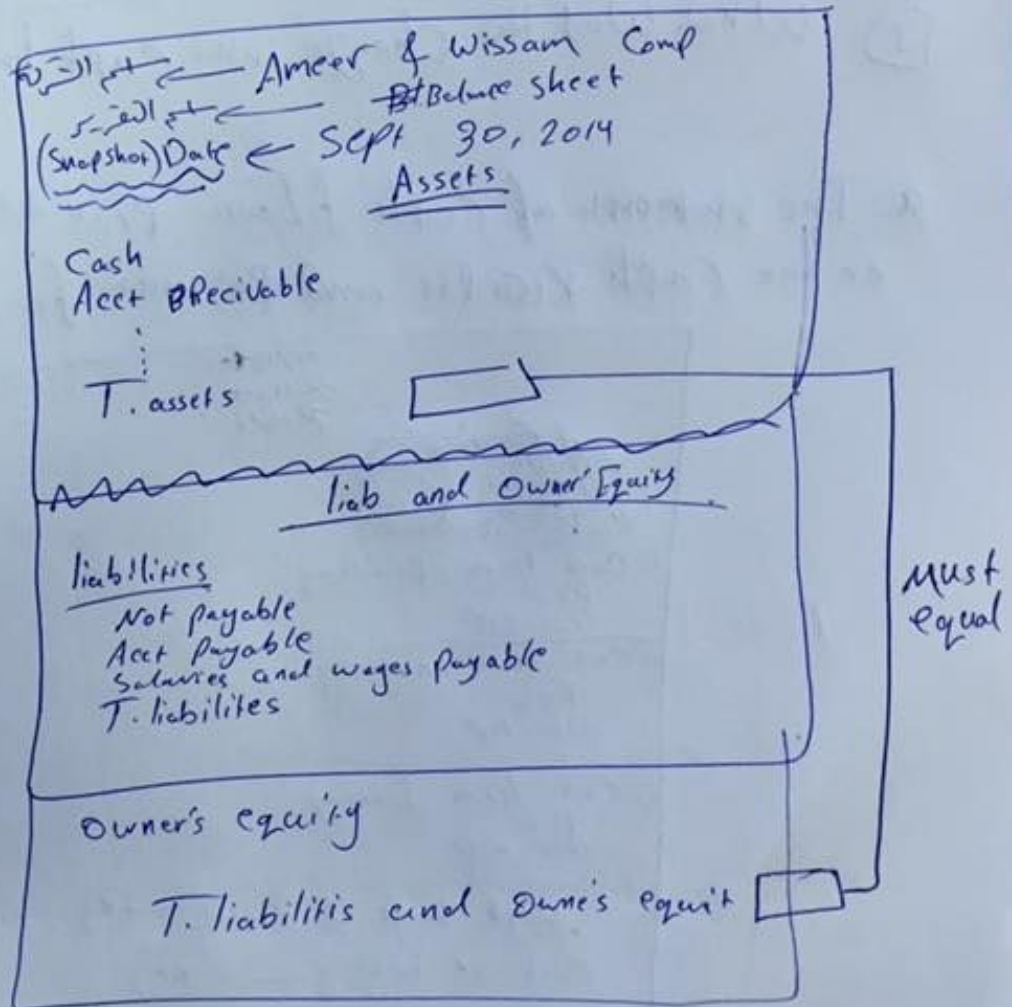 اسم الشركة ← Ameer & Wissam Comp
اسم التقرير ← Balance sheet
(Snapshot) Date ← Sept 30, 2014
Assets
Cash
Acct Recivable
T. assets
liab and Owner' Equity
liabilities
Not payable
Acct payable
Salaries and wages payable
T. liabilites
Must equal
Owner's equity
T. liabilitis and Owne's equit